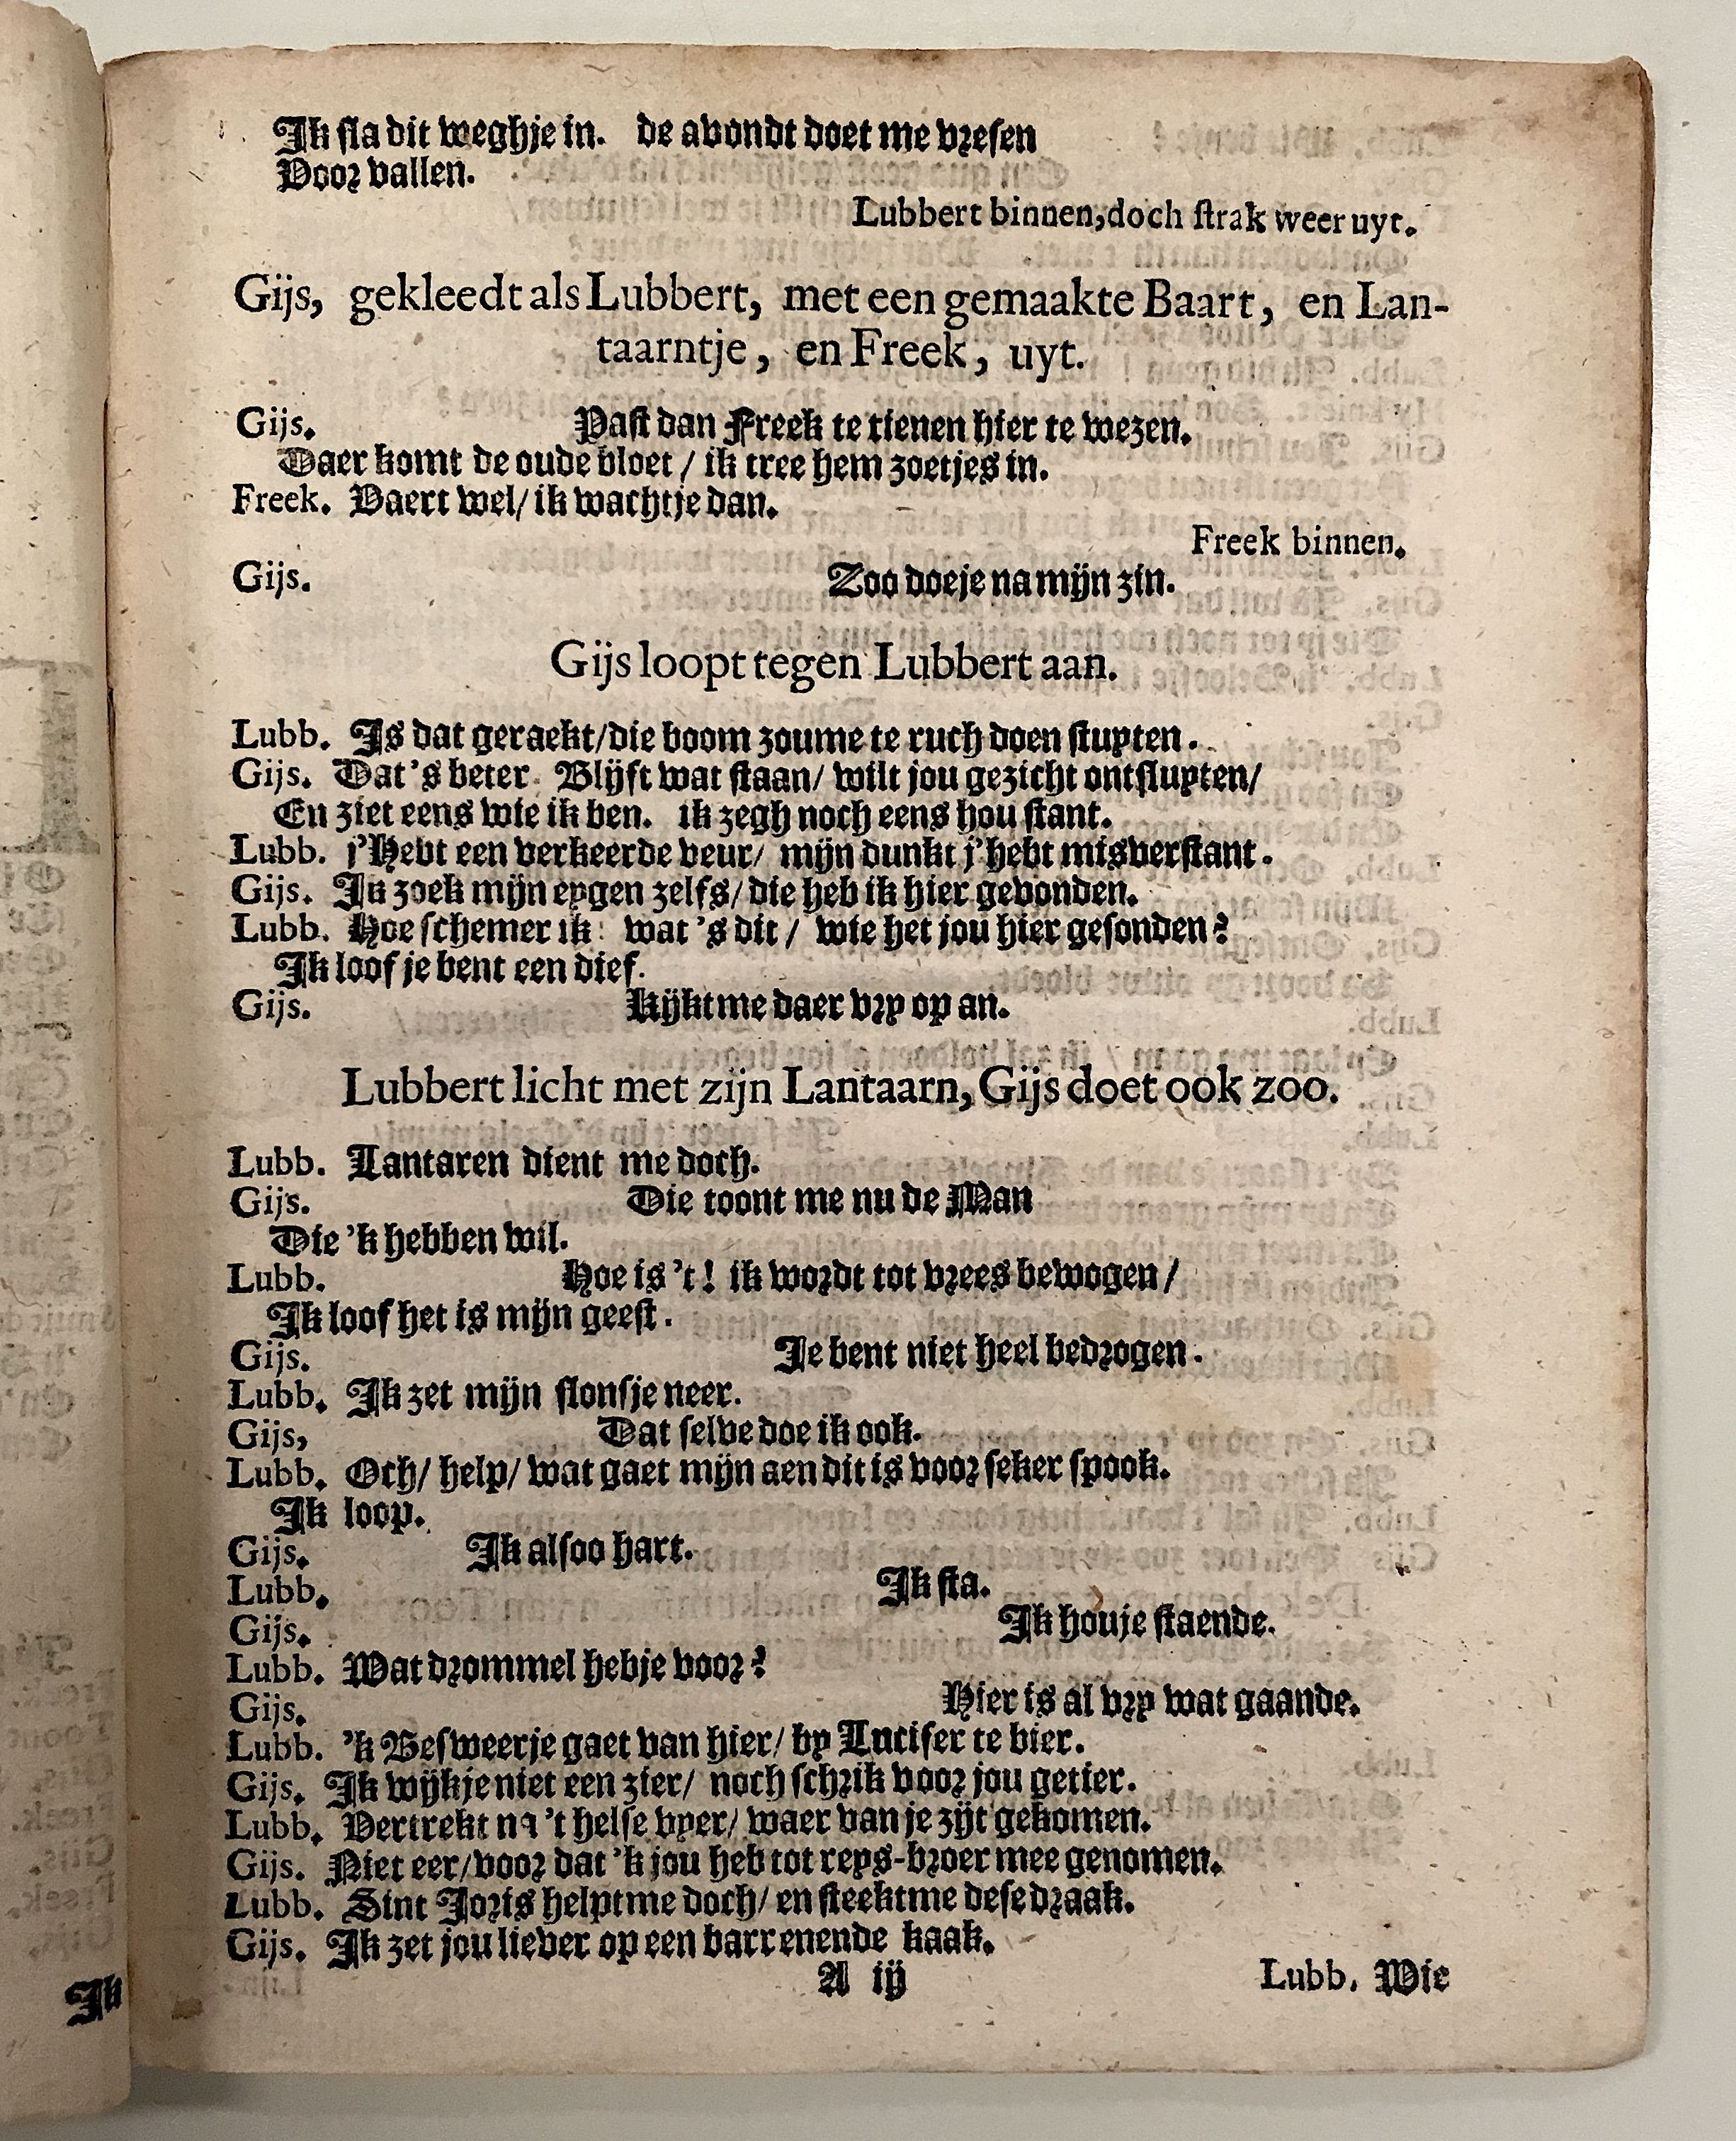 Ik sla dit weghje in. de avondt doet me vresen
Voor vallen.
Lubbert binnen, doch strak weer uyt.
Gijs, gekleedt als Lubbert, met een gemaakte Baart, en Lan-
taarntje, en Freek, uyt.
Gijs. Past dan Freek te tienen hier te wezen.
Daer komt de oude bloet / ik tree hem zoetjes in.
Freek. Vaert wel / ik wachtje dan.
Freek binnen.
Gijs. Zoo doeje na mijn zin.
Gijs loopt tegen Lubbert aan.
Lubb. Is dat geraekt / die boom zoume te ruch doen stuyten.
Gijs. Dat 's beter. Blijft wat staan / wilt jou gezicht ontsluyten /
En ziet eens wie ik ben. ik zegh noch eens hou stant.
Lubb. j'Hebt een verkeerde veur / mijn dunkt j'hebt misverstant.
Gijs. Ik zoek mijn eygen zelfs / die heb ik hier gevonden.
Lubb. Hoe schemer ik! wat 's dit / wie het jou hier gesonden?
Ik loof je bent een dief.
Gijs. Kijkt me daer vry op an.
Lubbert licht met zijn Lantaarn, Gijs doet ook zoo.
Lubb. Lantaren dient me doch.
Gijs. Die toont me nu de Man
Die 'k hebben wil.
Lubb. Hoe is 't! ik wordt tot vrees bewogen /
Ik loof het is mijn geest.
Gijs. Je bent niet heel bedrogen.
Lubb. Ik zet mijn slonsje neer.
Gijs, Dat selve doe ik ook.
Lubb. Och / help / wat gaet mijn aen dit is voor seker spook.
Ik loop.
Gijs. Ik alsoo hart.
Lubb. Ik sta.
Gijs. Ik houje staende.
Lubb. Wat drommel hebje voor?
Gijs. Hier is al vry wat gaande.
Lubb. 'k Besweerje gaet van hier / by Lucifer te bier.
Gijs. Ik wijkje niet een zier / noch schrik voor jou getier.
Lubb. Vertrekt na 't helse vyer / waer van je zijt gekomen.
Gijs. Niet eer / voor dat 'k jou heb tot reys-broer mee genomen.
Lubb. Sint Joris helpt me doch / en steekt me dese draak.
Gijs. Ik zet jou liever op een barrenende kaak.
A ij Lubb. Wie
Ik